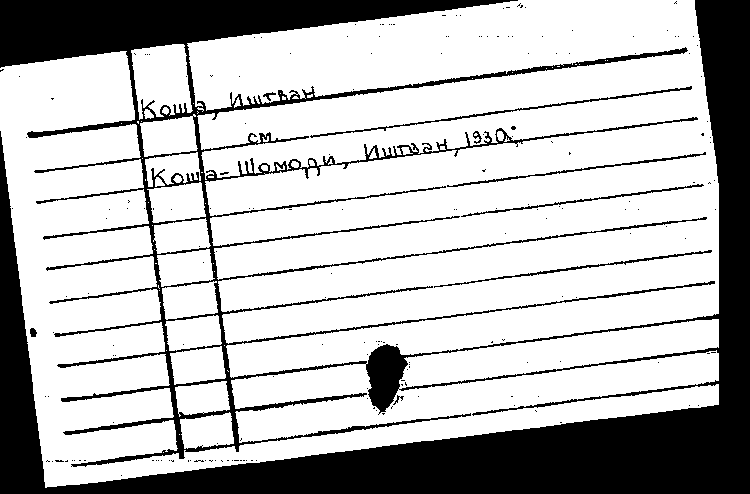 Коша, Иштван
см.
Коша-Шомоди, Иштван, 1930.